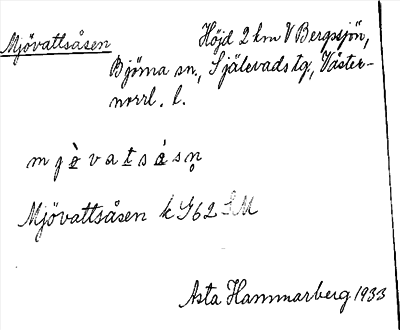 Mjövattsåsen Höjd 2 km V Bergssjön,
Björna sn, Själevads tg, Väster-
norrl. l.
m j ö̀ v a t s å̀ s n̥
Mjövattsåsen k I62 SM
Asta Hammarberg 1933